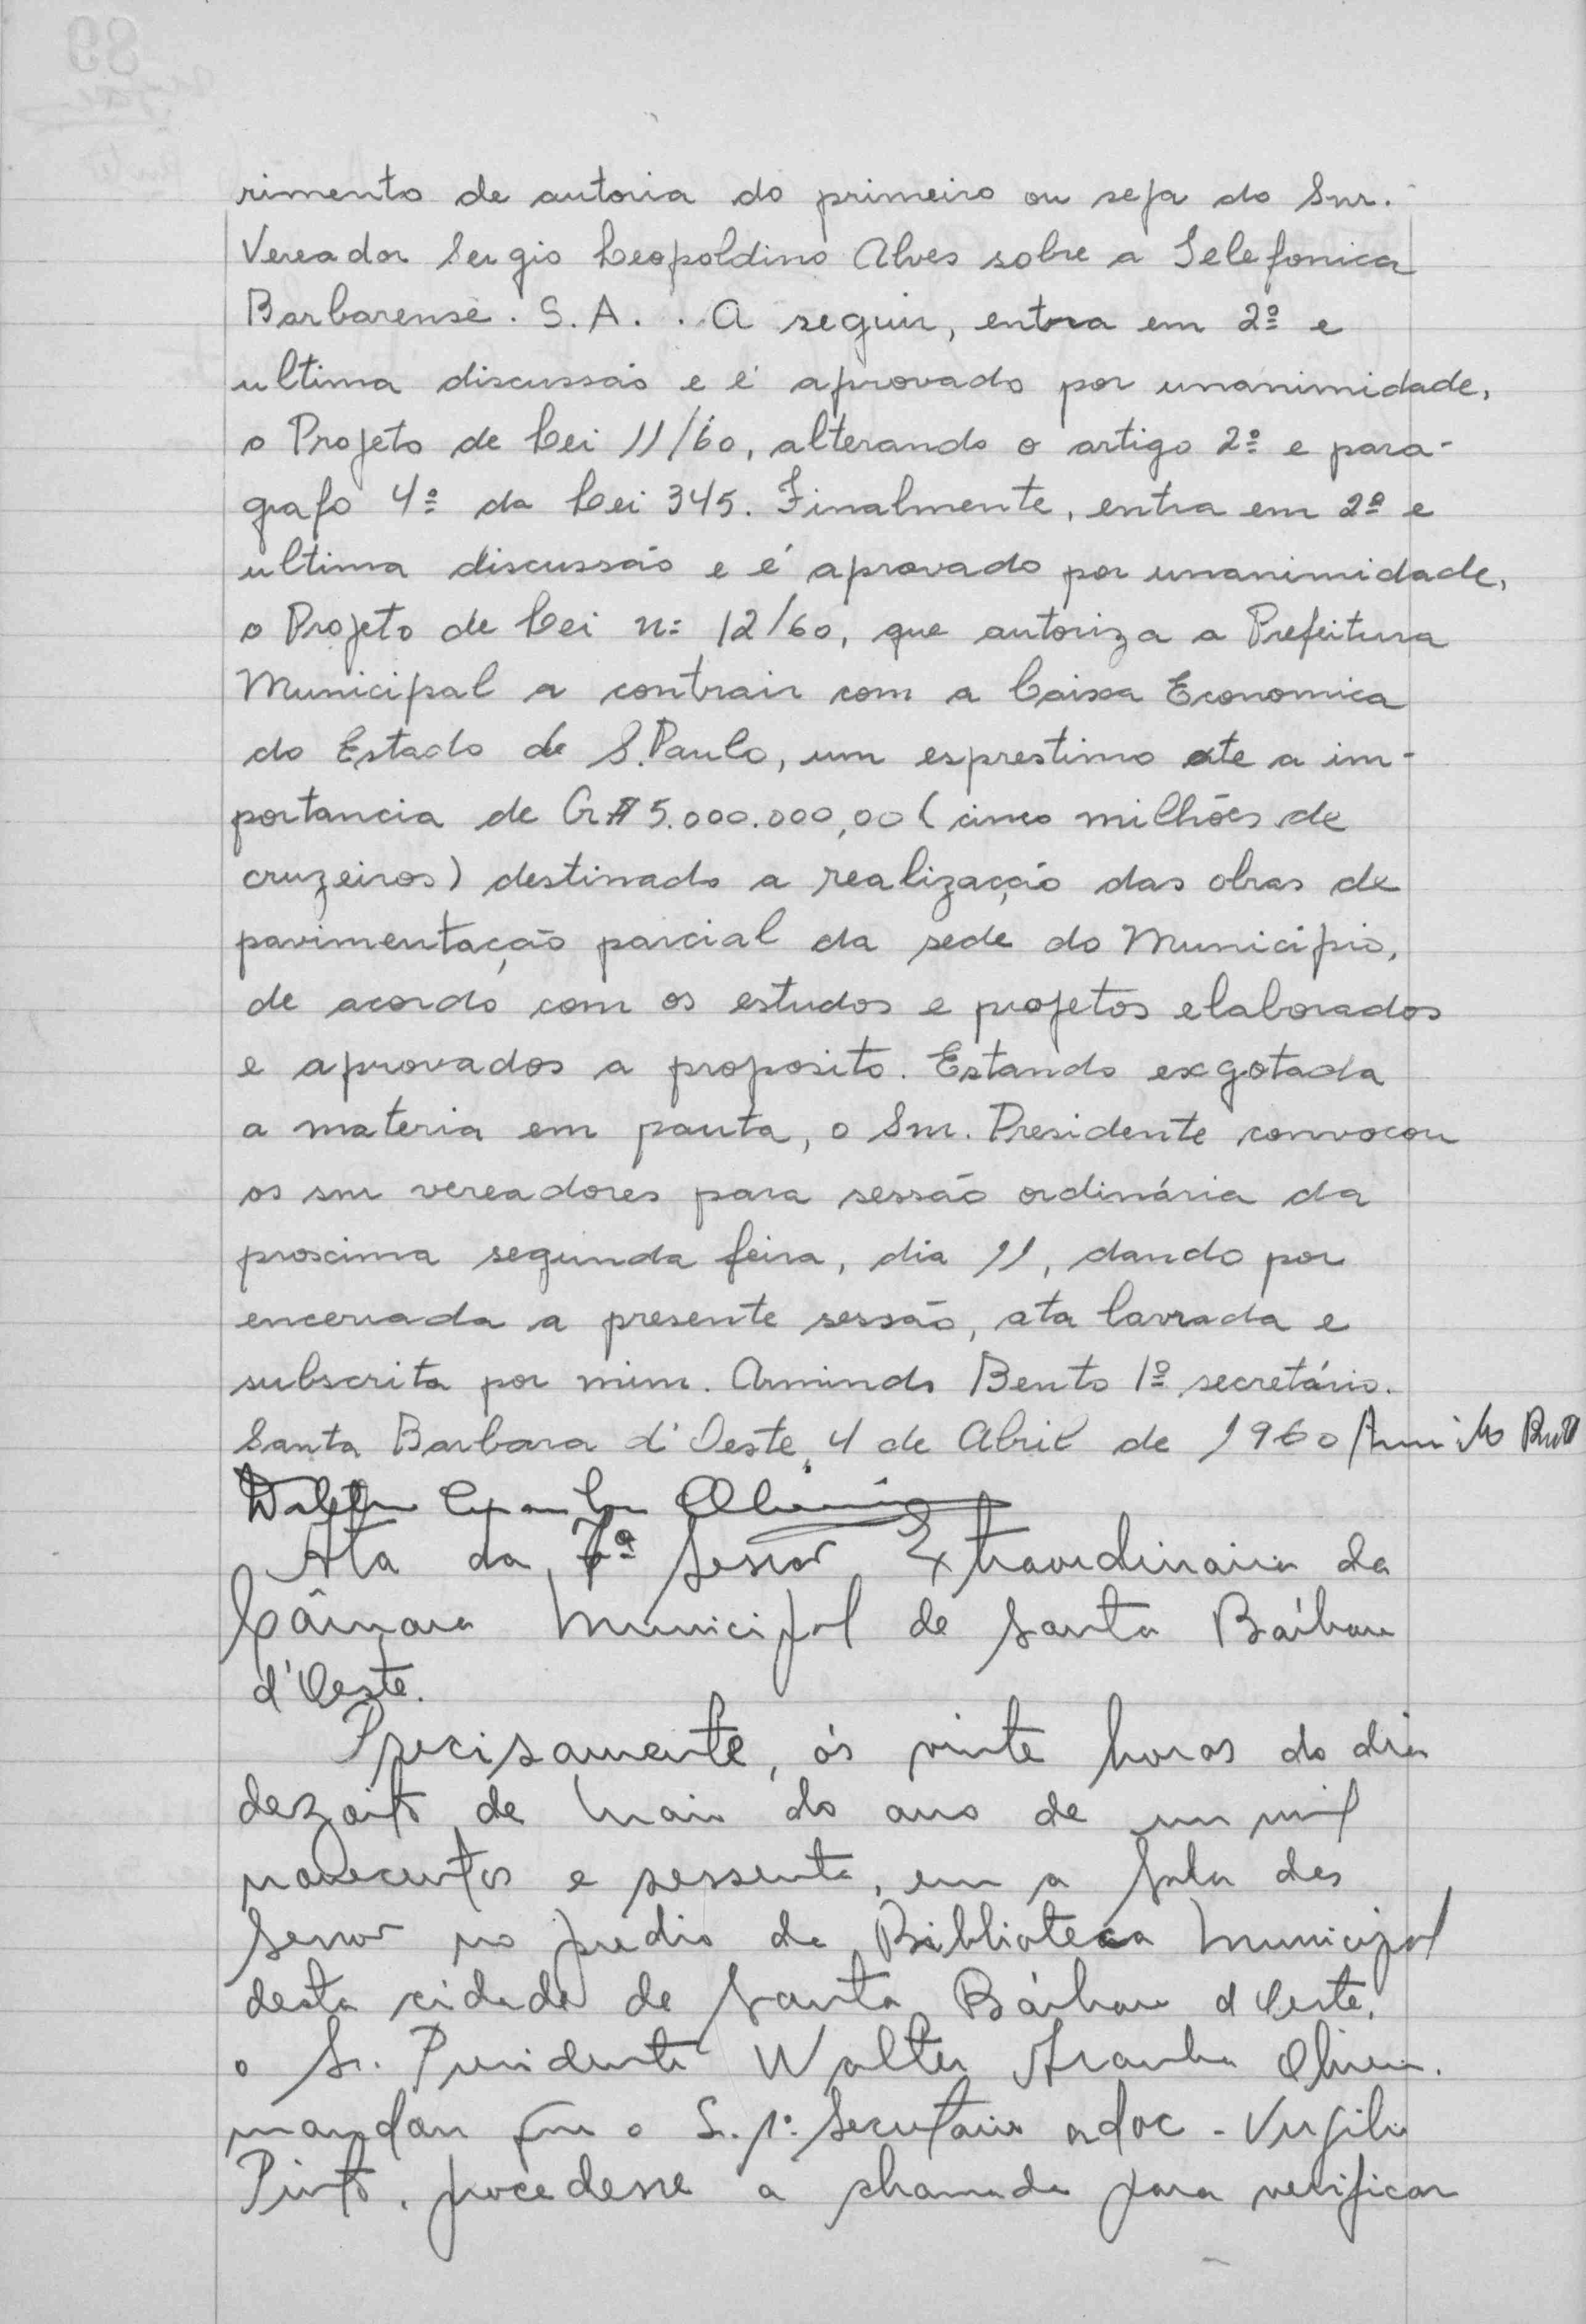 rimento de autoria do primeiro ou seja do Snr.
Vereador Sergio Leopoldino Alves sobre a Telefonica
Barbarense. S.A. . A seguir, entra em 2º e
ultima discussão e é aprovado por unanimidade,
o Projeto de Lei 11/60, alterando o artigo 2º e para-
grafo 4º da Lei 345. Finalmente, entra em 2º e
ultima discussão e é aprovado por unanimidade,
o Projeto de Lei nº 12/60, que autoriza a Prefeitura
Municipal a contrair com a Caixa Economica
do Estado de S.Paulo, um esprestimo ate a im-
portancia de Cr$ 5.000.000,00 (cinco milhões de
cruzeiros) destinado a realização das obras de
pavimentação parcial da sede do Municipio,
de acordo com os estudos e projetos elaborados
e aprovados a proposito. Estando exgotada
a materia em pauta, o Snr. Presidente convocou
os snr vereadores para sessão ordinária da
proxima segunda feira, dia 11, dando por
encerrada a presente sessão, ata lavrada e
subscrita por mim. Armindo Bento 1º secretário.
Santa Barbara d'Oeste, 4 de Abril de 1960
Ata da 7ª Sessão Extraordinaria da
Câmara Municipal de Santa Bárbara
d'Oeste.
Precisamente, ás vinte horas do dia
dezoito de Maio do ano de um mil
novecentos e sessenta, em a Sala des
Sessão no predio da Biblioteca Municipal
desta cidade de Santa Bárbara d'Oeste,
o Sr. Presidente Walter Aranha Oliveira.
mandou que o S. 1º Secretario adoc - Virgilio
Pinto, procedesse a chamada para verificar